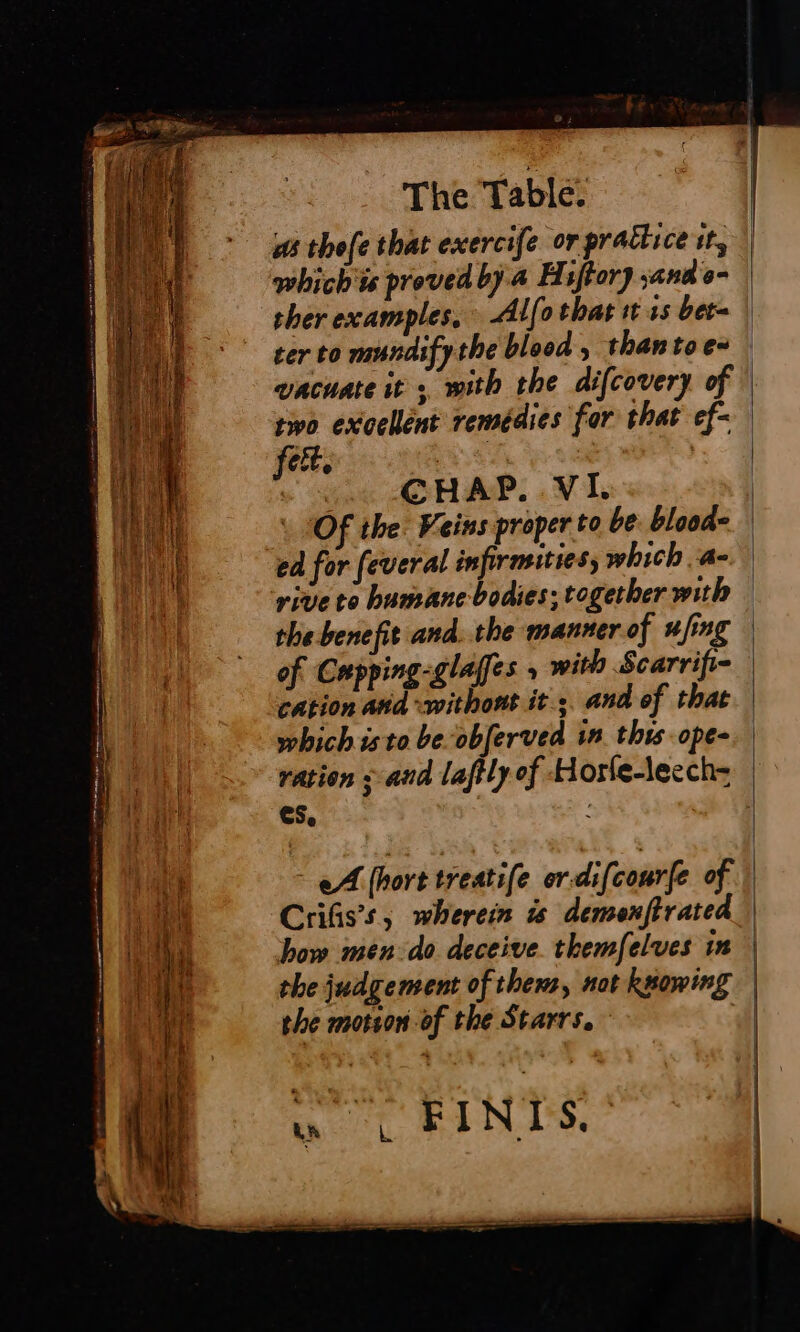 The Table.
as thoſe that exerciſe or practice it,
which is proved by a Hiſtory, and o-
ther examples. Alſo that it is bet-
ter to mundify the blood, than to e-
vacuate it; with the diſcovery of
two excellent remedies for that ef-
fect.
CHAP. VI.
Of the Veins proper to be blood-
ed for ſeveral infirmities, which a-
rive to humane bodies; together with
the benefit and the manner of uſing
of Cupping-glaſſes, with Scarrifi-
cation and without it; and of that
which is to be obſerved in this ope-
ration; and laſtly of Horſe-leech-
es.
A ſhort treatiſe or diſcourſe of
Criſis's, wherein is demonſtrated
how men do deceive themſelves in
the judgement of them, not knowing
the motion of the Starrs.
FINIS.